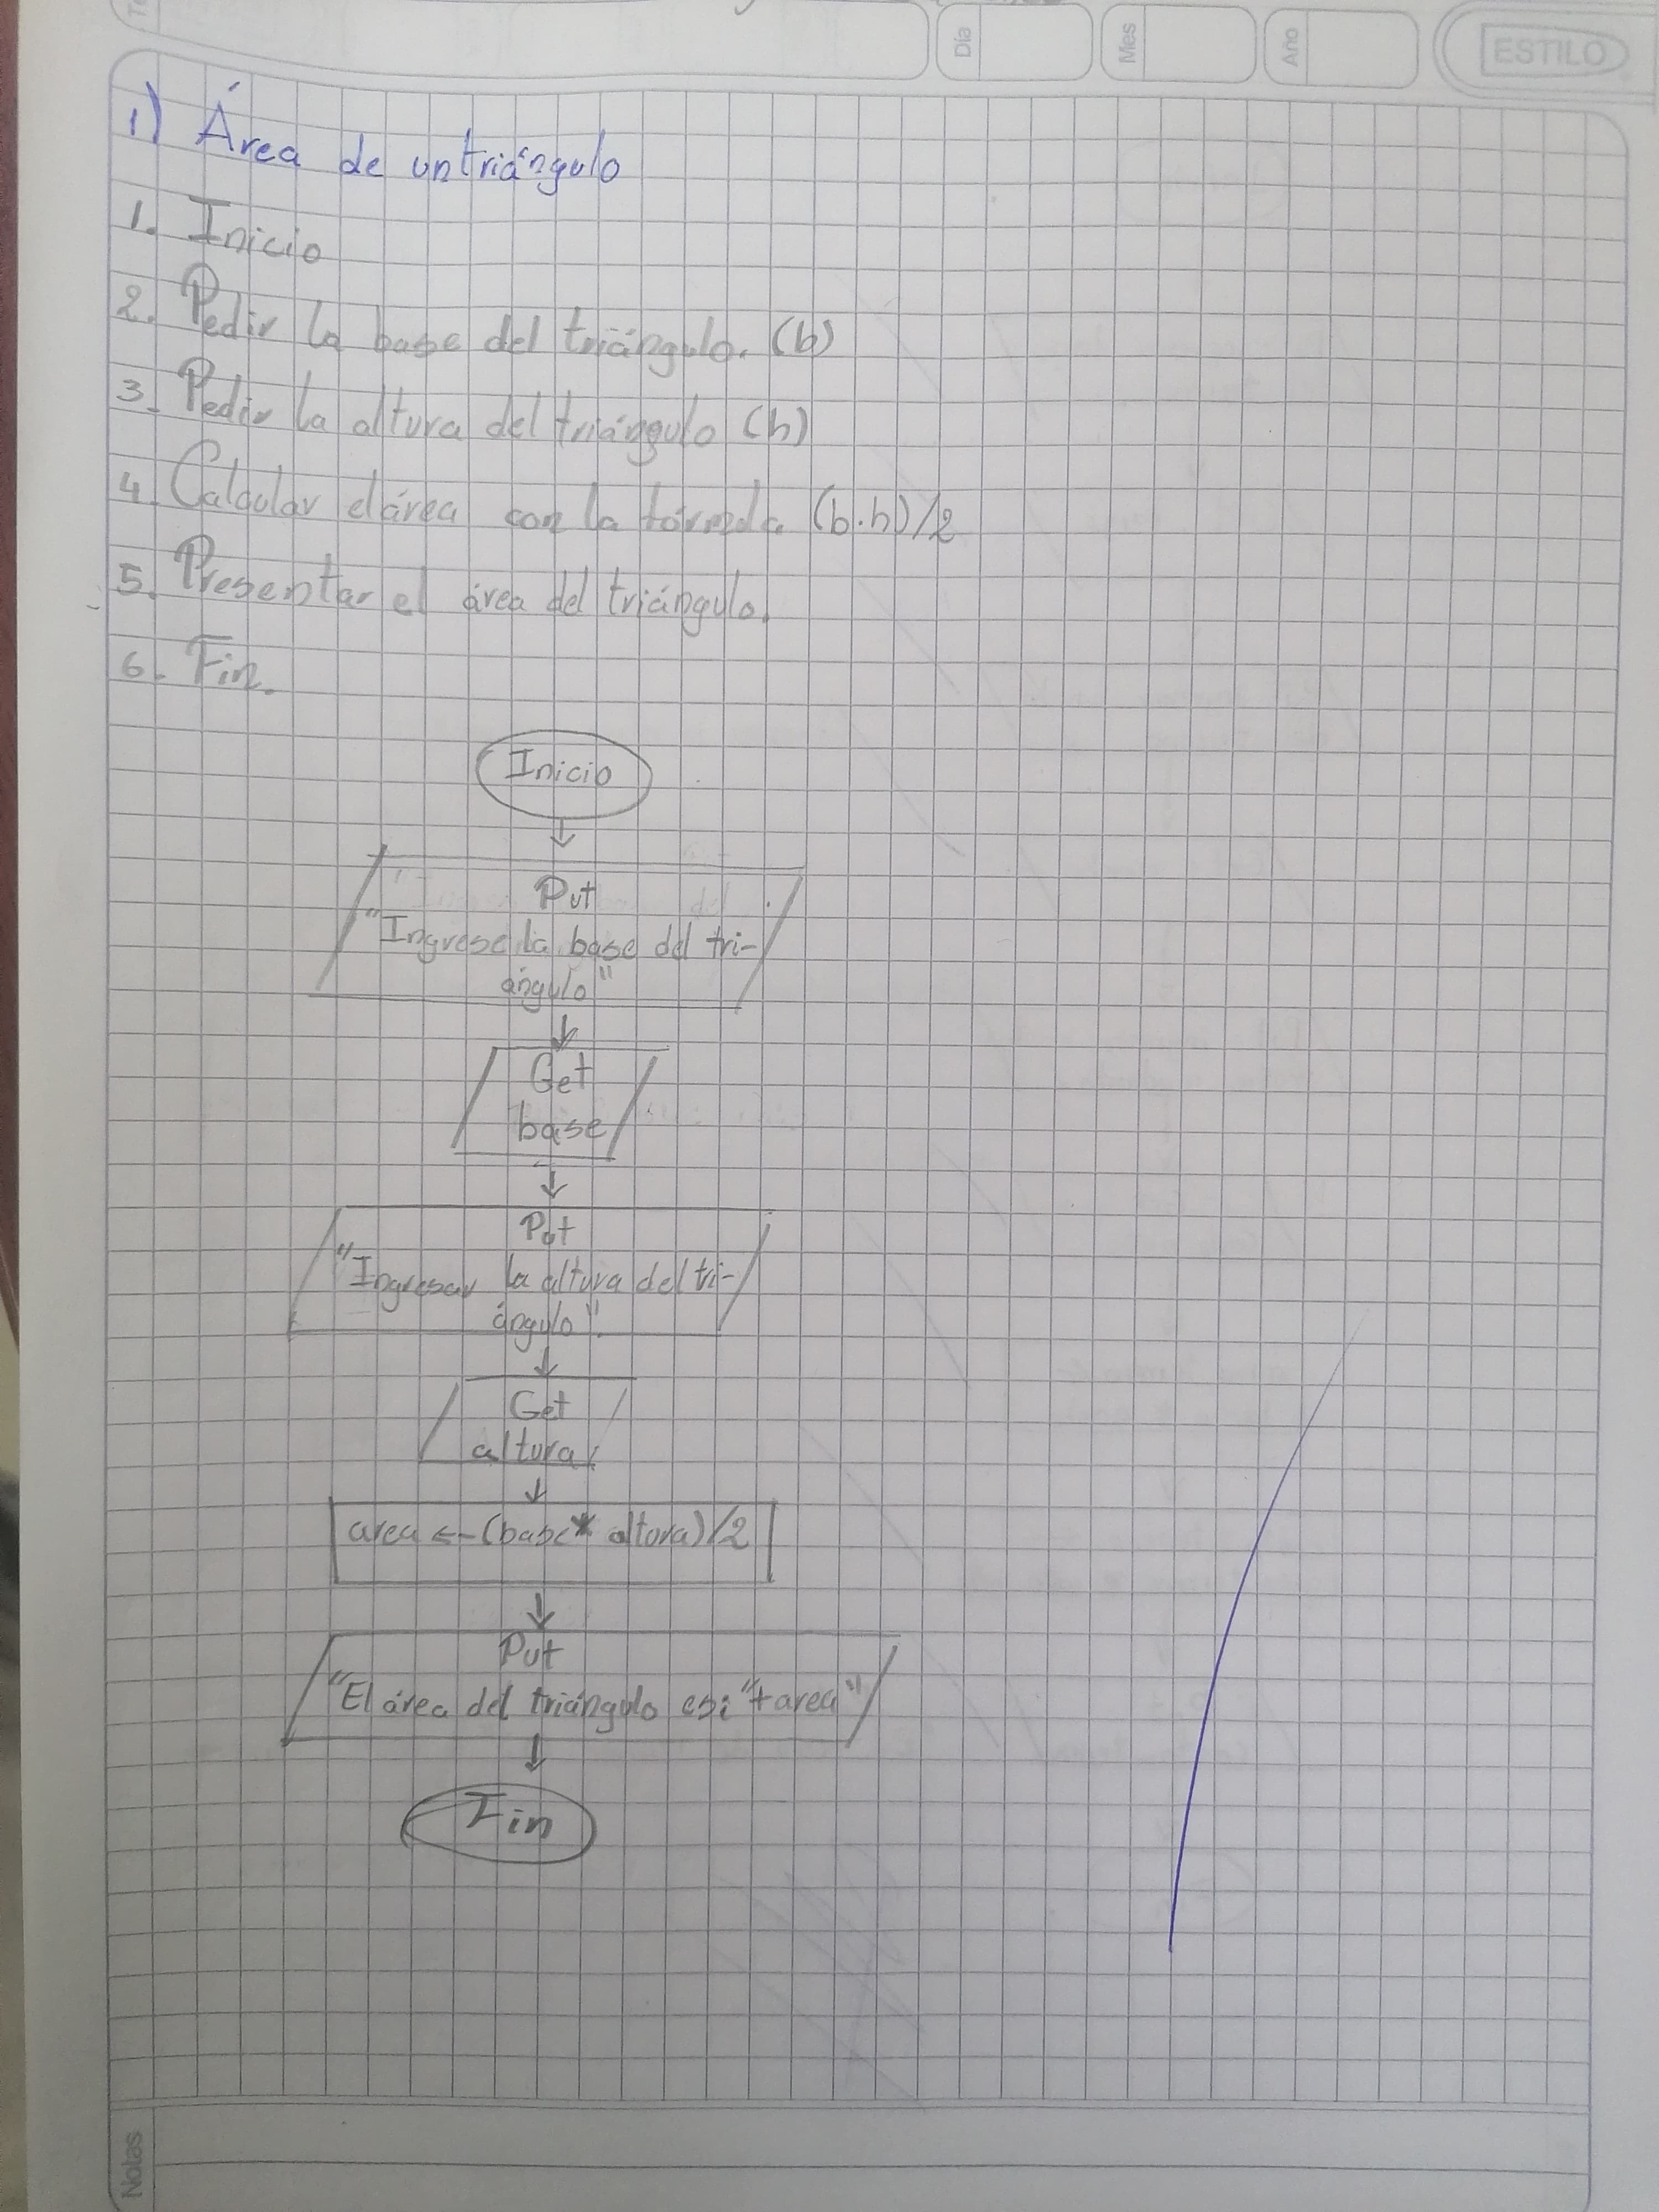 Día
Mes
Año
ESTILO
1) Área de un triángulo
1. Inicio
2. Pedir la base del triángulo. (b)
3. Pedir la altura del triángulo (h)
4. Calcular el área con la fórmula (b.h)/2
5. Presentar el área del triángulo.
6. Fin.
Inicio
Put
"Ingrese la base del tri-
ángulo"
Get
base
Put
"Ingresar la altura del tri-
ángulo".
Get
altura
area <- (base * altura)/2
Put
"El área del triángulo es: "+area"
Fin
Notas